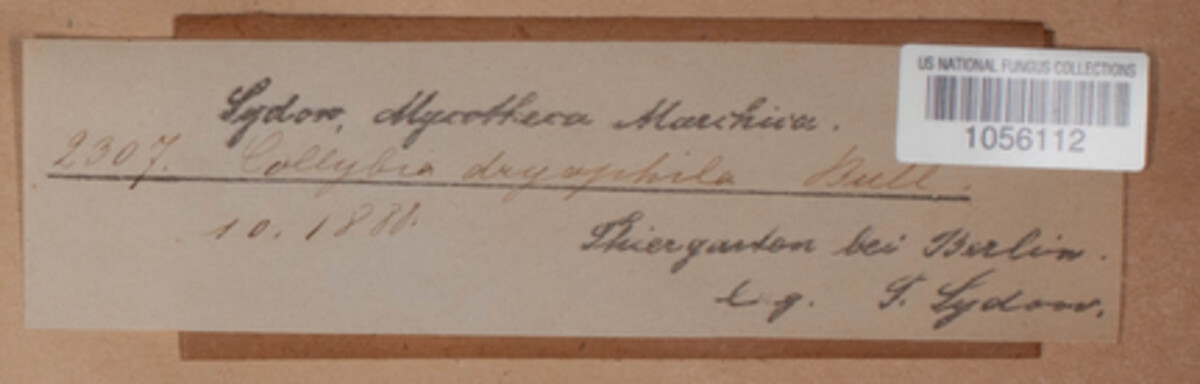 US NATIONAL FUNGUS COLLECTIONS
1056112
Sydow, Mycotheca Marchica.
2307. Collybia dryophila Bull.
10. 1888.
Thiergarten bei Berlin.
leg. P. Sydow.